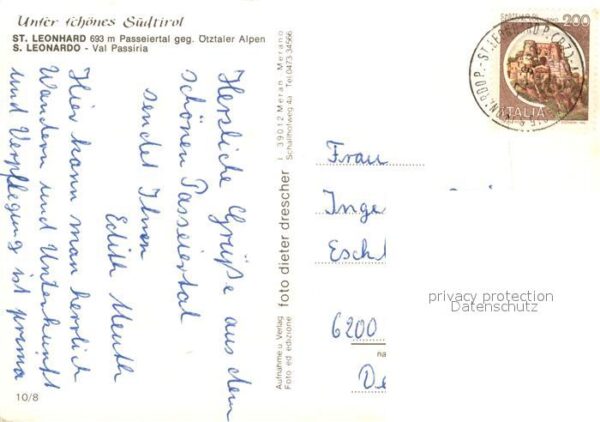 Unser schönes Südtirol
ST. LEONHARD 693 m Passeiertal geg. Otztaler Alpen
S. LEONARDO - Val Passiria
Herzliche Grüße aus dem
schönen Passeiertal
sendet Ihnen
Edith
Hier kann man herrlich
Wandern und Unterkunft
und Verpflegung ist prima
10/8
Aufnahme u. Verlag
Foto ed edizione
foto dieter drescher
I. 39012 Meran - Merano
Schallhofweg 4a Tel. 0473 34566
200
ITALIA
Frau
Inge
6200
privacy protection
Datenschutz